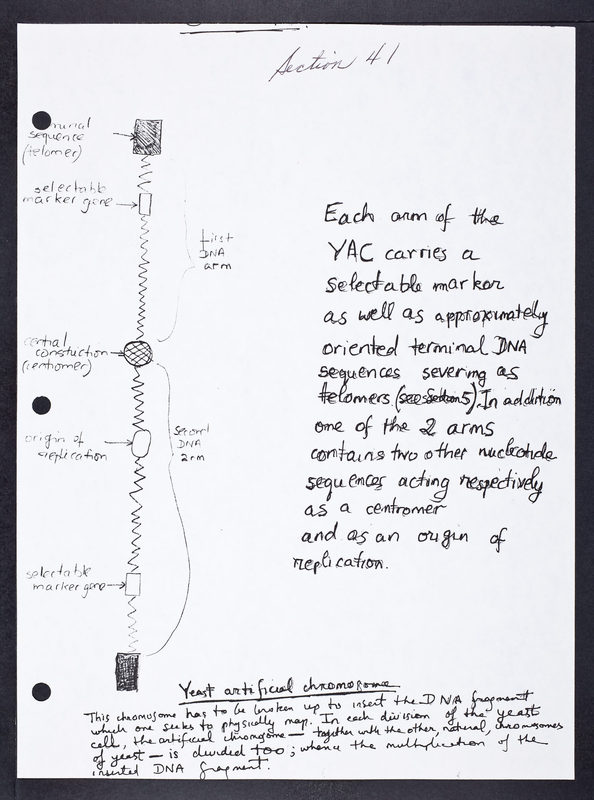 Section 41
sequence
(telomer)
selectable
marker gene
first
DNA
arm
Each arm of the
YAC carries a
selectable marker
as well as approximately
oriented terminal DNA
sequences severing as
telomers (see Section 5). In addition
one of the 2 arms
contains two other nucleotide
sequences acting respectively
as a centromer
and as an origin of
replication.
central
constuction
(centromer)
Second
DNA
arm
origin of
replication
selectable
marker gene
Yeast artificial chromosome
This chromosome has to be broken up to insert the DNA fragment
which one seeks to physically map. In each division of the yeast
cell, the artificial chromosome — together with the other, natural, chromosomes
of yeast — is divided too; whence the multiplication of the
inserted DNA fragment.